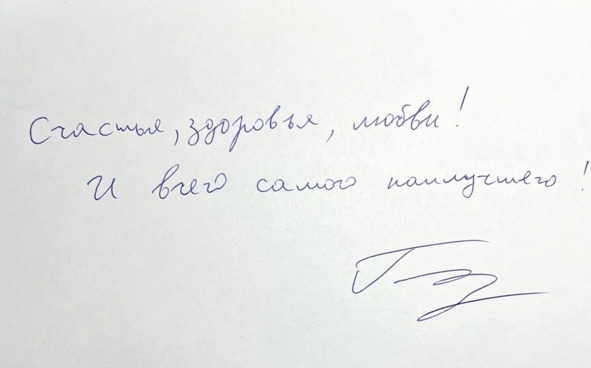 Счастья, здоровья, любви!
И всего самого наилучшего!